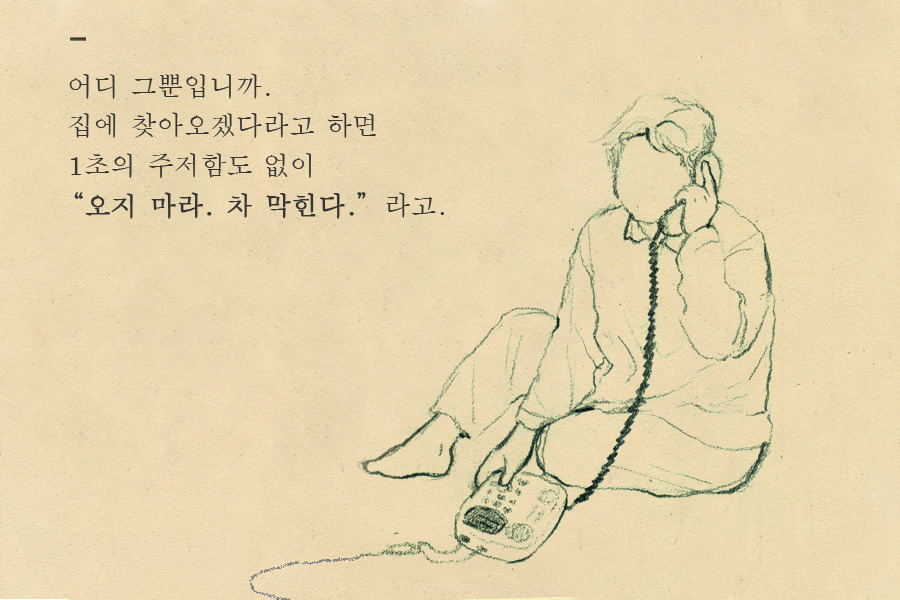 어디 그뿐입니까.
집에 찾아오겠다라고 하면
1초의 주저함도 없이
“오지 마라. 차 막힌다.” 라고.